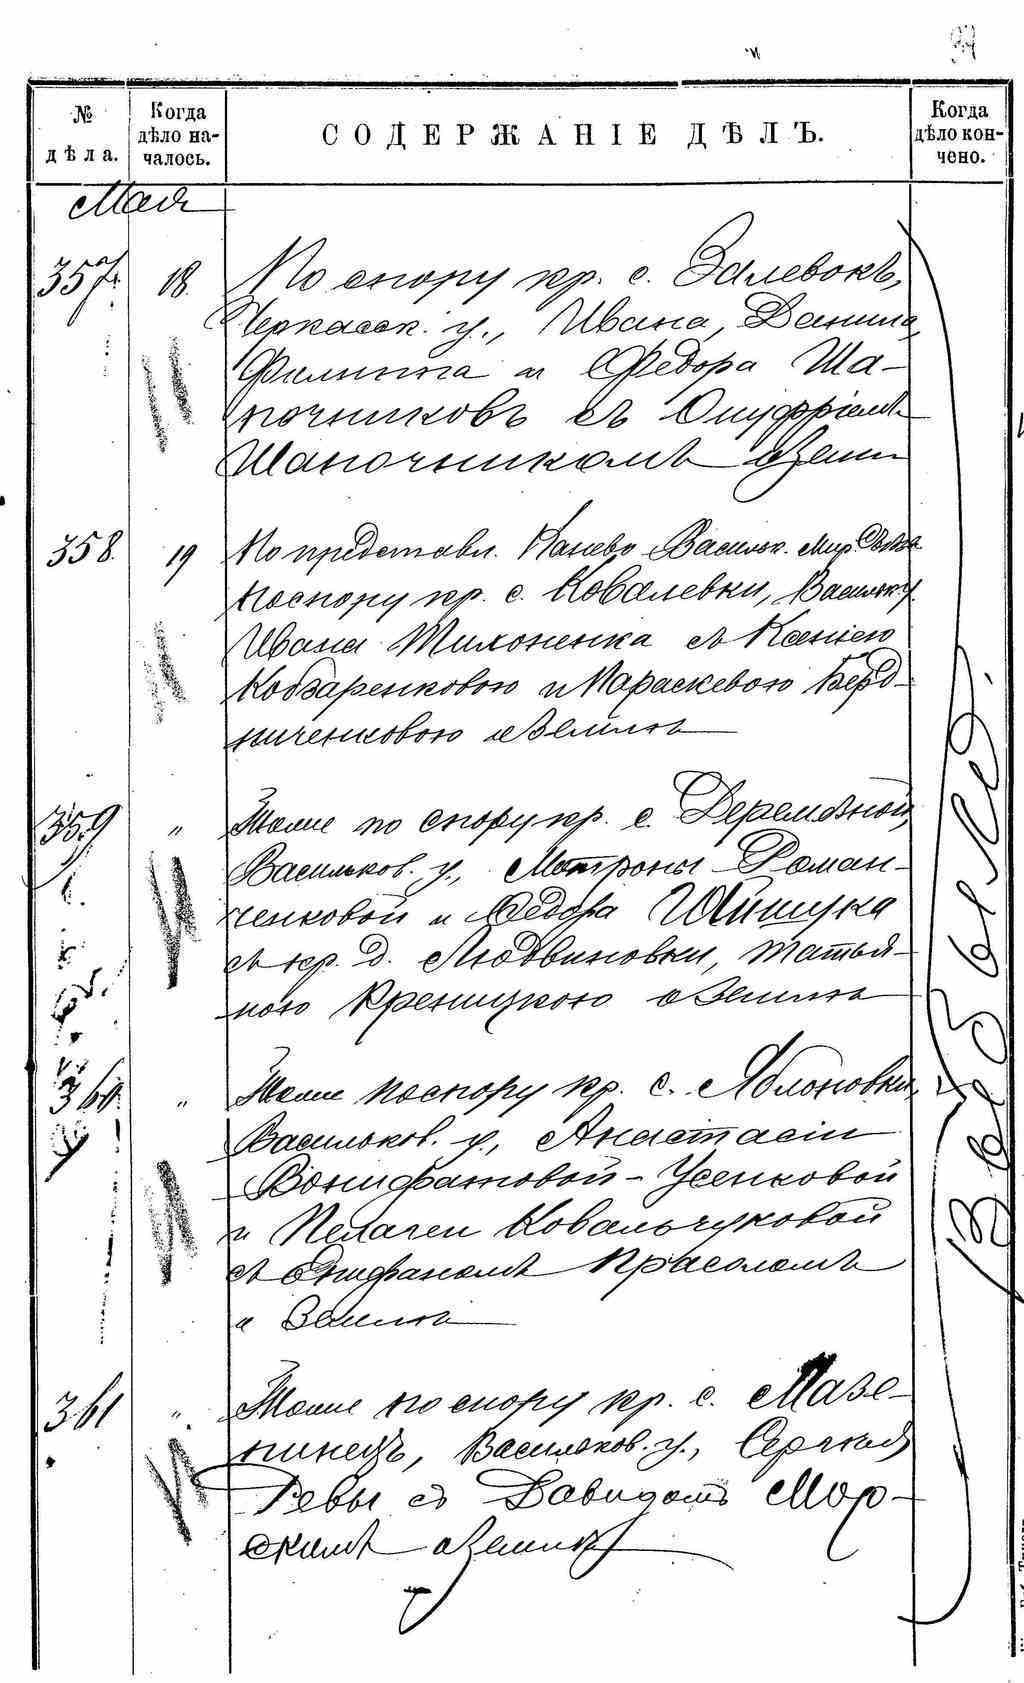 № дѣла.
Когда дѣло началось.
СОДЕРЖАНІЕ ДѢЛЪ.
Когда дѣло кончено.
Мая
357. 18. По спору кр. с. Залевокъ,
Черкасск. у., Ивана, Данила,
Филиппа и Федора Ша-
почниковъ съ Онуфріемъ
Шапочникомъ о земли
358. 19 По представл. Канево-Васильк. Мир. Съѣзда
по спору кр. с. Ковалевки, Васильк. у.
Ивана Тихоненка съ Ксеніею
Кобзаренковою и Параскевою Берд-
ниченковою о землѣ
359 " Тоже по спору кр. с. Деремезной,
Васильков. у., Мотроны Роман-
ченковой и Федора
съ кр. д. Людвиновки, Татья-
ною Креницкою о землѣ
360. " Тоже по спору кр. с. Яблоновки,
Васильков. у., Анастасіи
Вонифатовой-Усенковой
и Пелагеи Ковальчуковой
съ Епифаномъ Прасоломъ
о землѣ
361 " Тоже по спору кр. с. Мазе-
пинецъ, Васильков. у., Сергѣя
Ревы съ Давидомъ Мор-
скимъ о землѣ